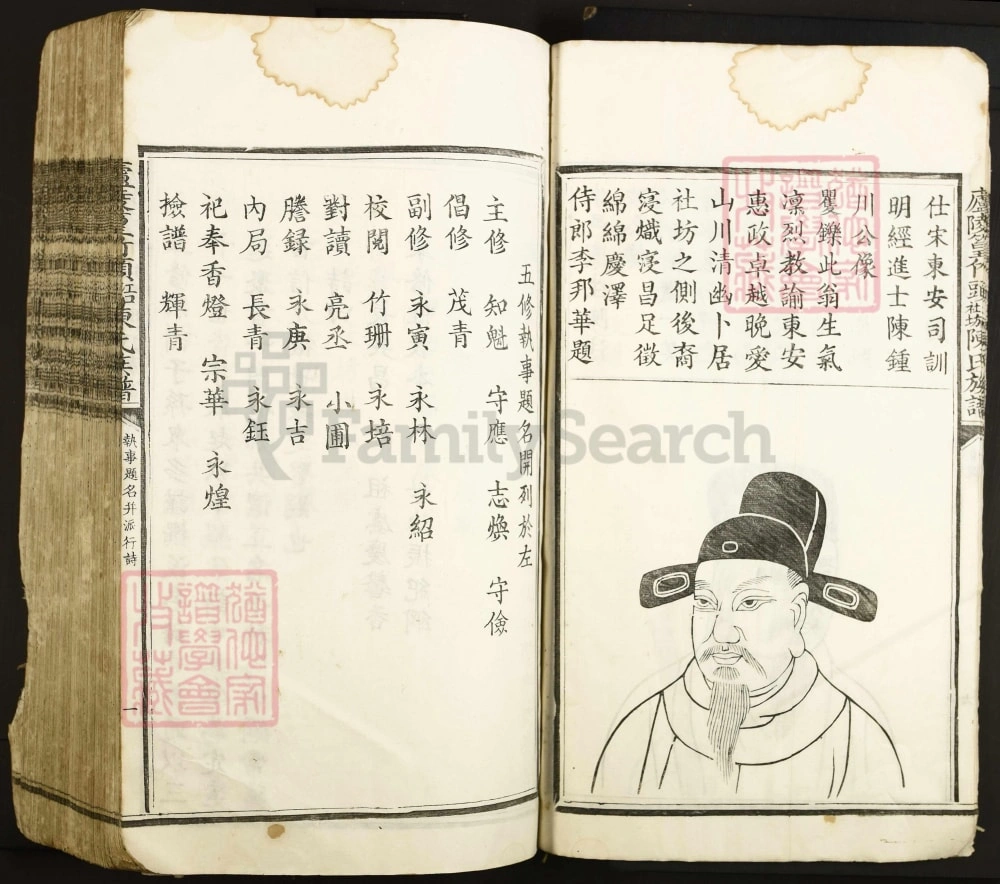 仕宋東安司訓
明經進士陳鍾
川公像
矍鑠此翁生氣
凜烈教諭東安
惠政卓越晚愛
山川清幽卜居
社坊之側後裔
寖熾寖昌足徵
綿綿慶澤
侍郎李邦華題
五修執事題名開列於左
主修 知魁 守應 志煥 守儉
倡修 茂青
副修 永寅 永林 永紹
校閱 竹珊 永培
對讀 亮丞 小圃
謄録 永庚 永吉
內局 長青 永鈺
祀奉香燈 宗華 永煌
撿譜 輝青
執事題名并派行詩
一
FamilySearch